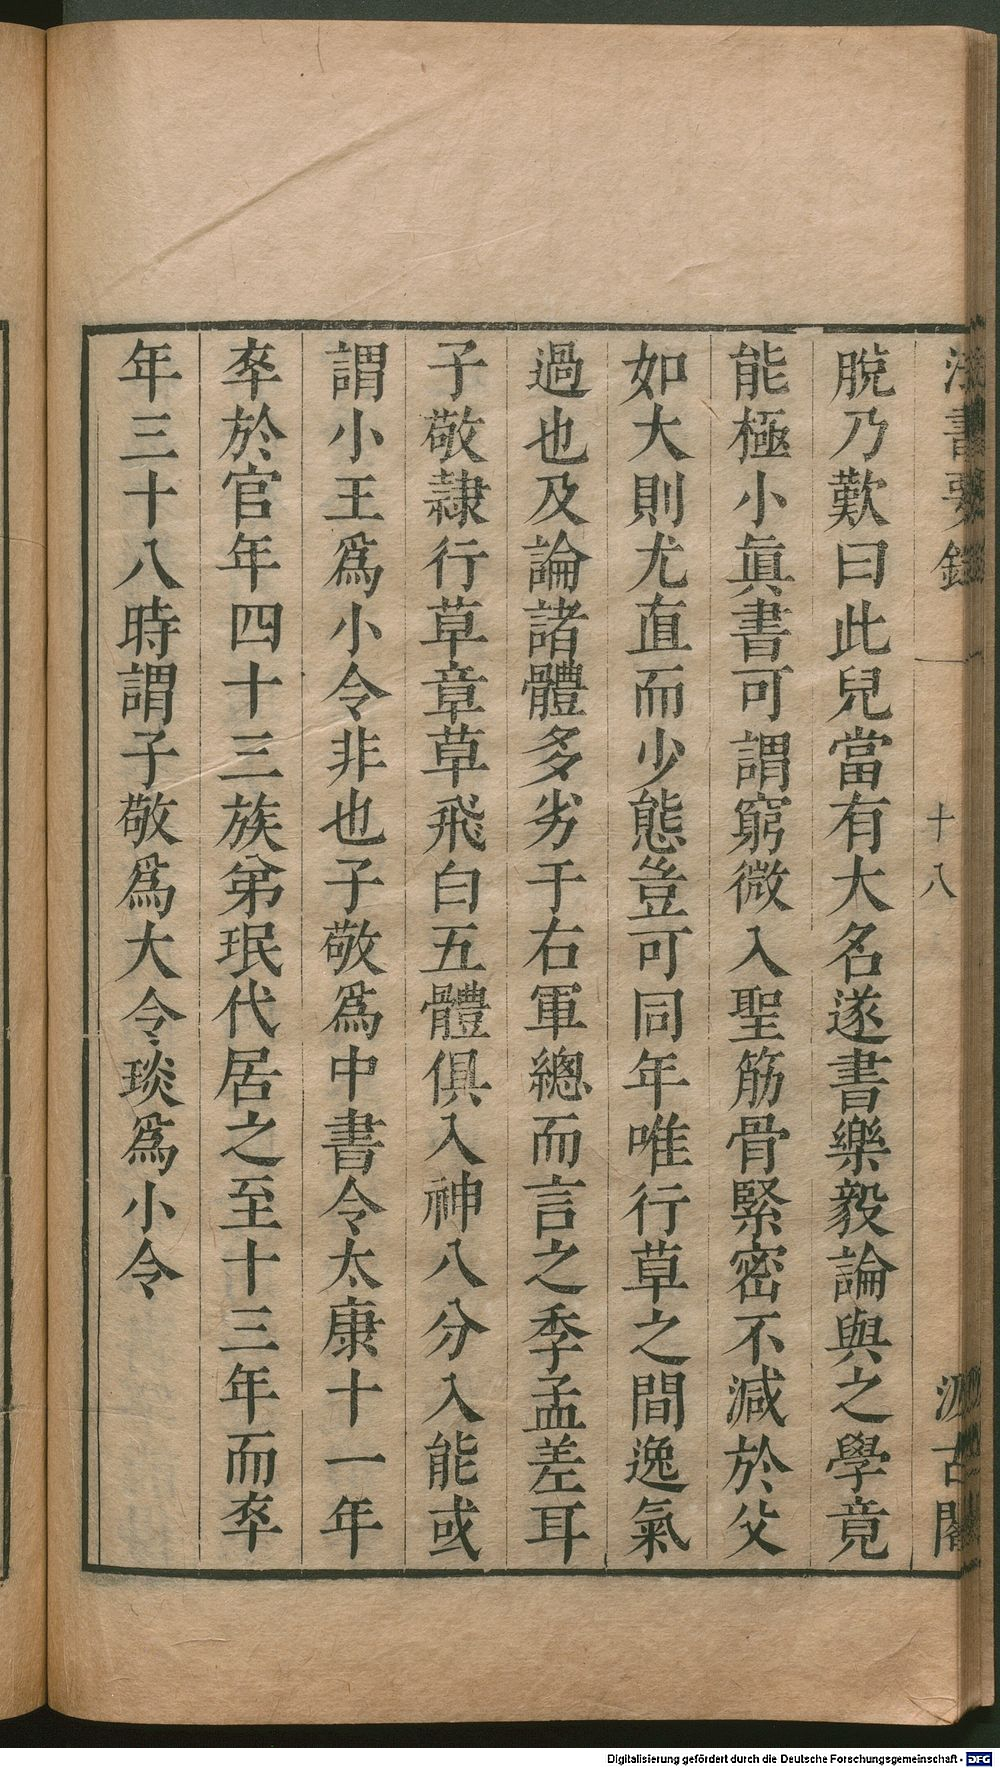 法書要錄
十八
汲古閣
脫乃歎曰此兒當有大名遂書樂毅論與之學竟
能極小眞書可謂窮微入聖筋骨緊密不減於父
如大則尤直而少態豈可同年唯行草之間逸氣
過也及論諸體多劣于右軍總而言之季孟差耳
子敬隷行草章草飛白五體俱入神八分入能或
謂小王爲小令非也子敬爲中書令太康十一年
卒於官年四十三族弟珉代居之至十三年而卒
年三十八時謂子敬爲大令琰爲小令
Digitalisierung gefördert durch die Deutsche Forschungsgemeinschaft - DFG